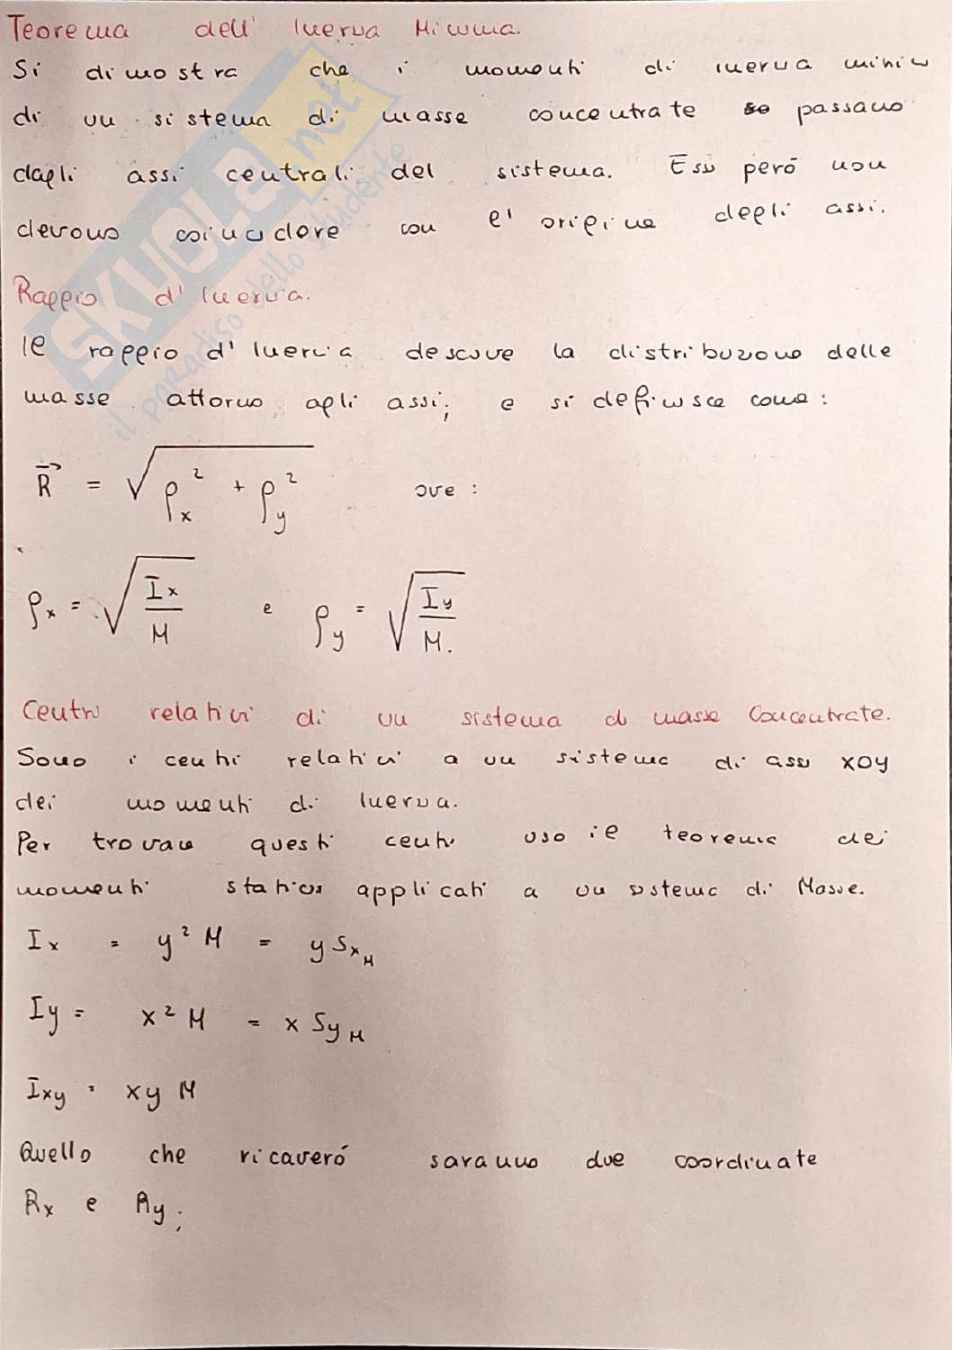 Teorema dell' Inerzia Minima.
Si dimostra che i momenti di inerzia minimi
di un sistema di masse concentrate se passano
dagli assi centrali del sistema. Essi però non
devono coincidere con l'origine degli assi.
Raggio d'Inerzia.
Il raggio d'Inercia descrive la distribuzione delle
masse attorno agli assi; e si definisce come:
R⃗ = √(ρx² + ρy²) ove:
ρx = √(Ix/M) e ρy = √(Iy/M.)
Centri relativi di un sistema di masse Concentrate.
Sono i centri relativi a un sistema di assi xoy
dei momenti di Inerzia.
Per trovare questi centri uso il teorema dei
momenti statici applicati a un sistema di Masse.
Ix = y² M = y SxM
Iy = x² M = x SyM
Ixy = xy M
Quello che ricaverò saranno due coordinate
Rx e Ry;
SKUOLA.net
il paradiso dello studente